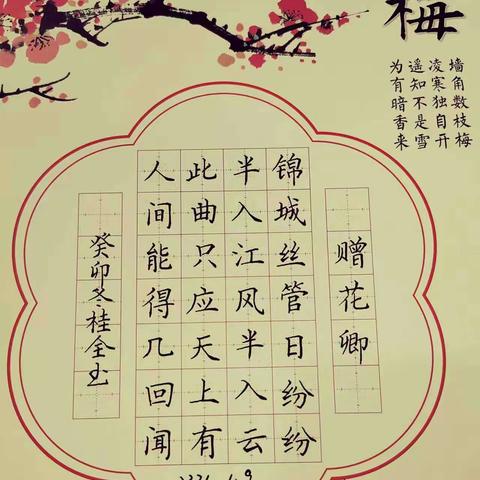 梅
墙角数枝梅
凌寒独自开
遥知不是雪
为有暗香来
赠花卿
锦城丝管日纷纷
半入江风半入云
此曲只应天上有
人间能得几回闻
癸卯冬桂全玉